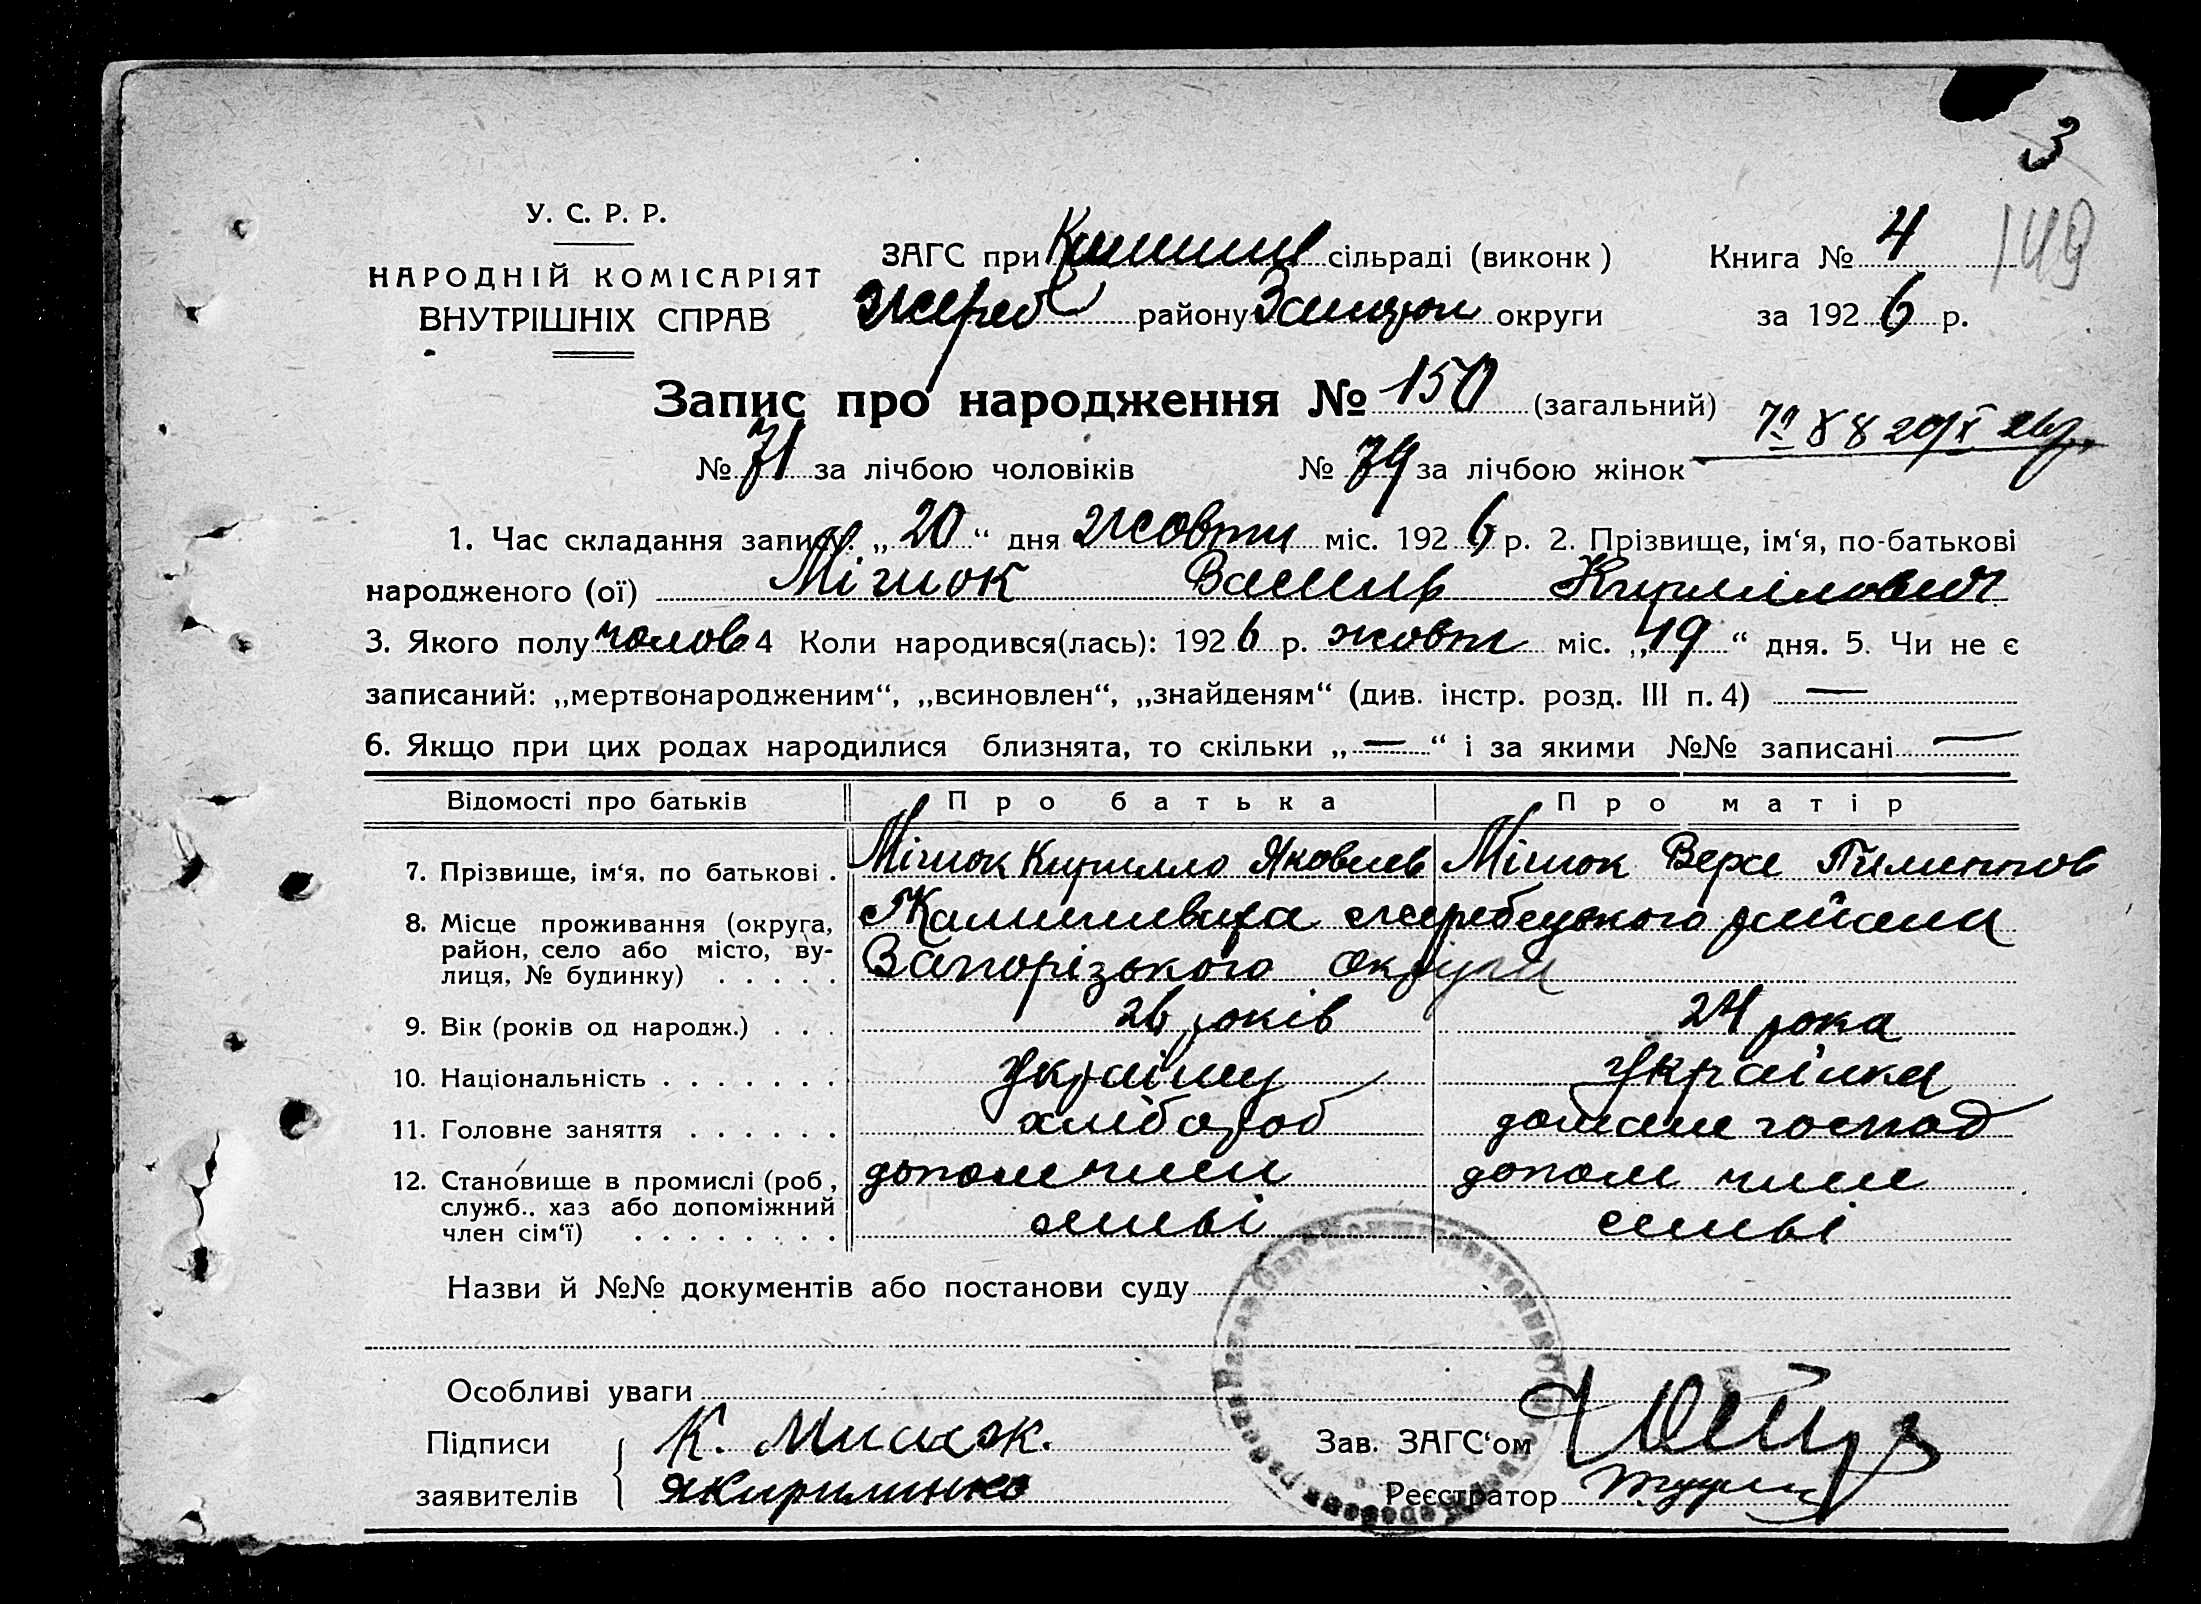 3
149
У. С. Р. Р.
НАРОДНІЙ КОМІСАРІЯТ
ВНУТРІШНІХ СПРАВ
ЗАГС при сільраді (виконк) Книга № 4
Жереб району Запоріж округи за 1926 р.
Запис про народження № 150 (загальний)
№ 71 за лічбою чоловіків № 79 за лічбою жінок
1. Час складання запису: „20“ дня Жовтн міс. 1926 р. 2. Прізвище, ім‘я, по-батькові
народженого (ої) Мішок Василь Кирилович
3. Якого полу чолов 4 Коли народився(лась): 1926 р. жовтн міс. „19“ дня. 5. Чи не є
записаний: „мертвонародженим“, „всиновлен“, „знайденям“ (див. інстр. розд. III п. 4) —
6. Якщо при цих родах народилися близнята, то скільки „—“ і за якими №№ записані —
Відомості про батьків Про батька Про матір
7. Прізвище, ім‘я, по батькові . Мішок Кирилло Яковлев Мішок Вера
8. Місце проживання (округа,
район, село або місто, ву-
лиця, № будинку) . . . . .
Жеребецького района
Запорізького округи
9. Вік (років од народж.) . . . 26 років 24 рока
10. Національність . . . . . . . Українец Українка
11. Головне заняття . . . . . . хлібороб домаш господ
12. Становище в промислі (роб,
служб., хаз або допоміжний
член сім‘ї) . . . . . . . .
допом член допом член
симьї симьї
Назви й №№ документів або постанови суду
Особливі уваги
Підписи К. Мишок. Зав. ЗАГС‘ом
заявителів Реєстратор